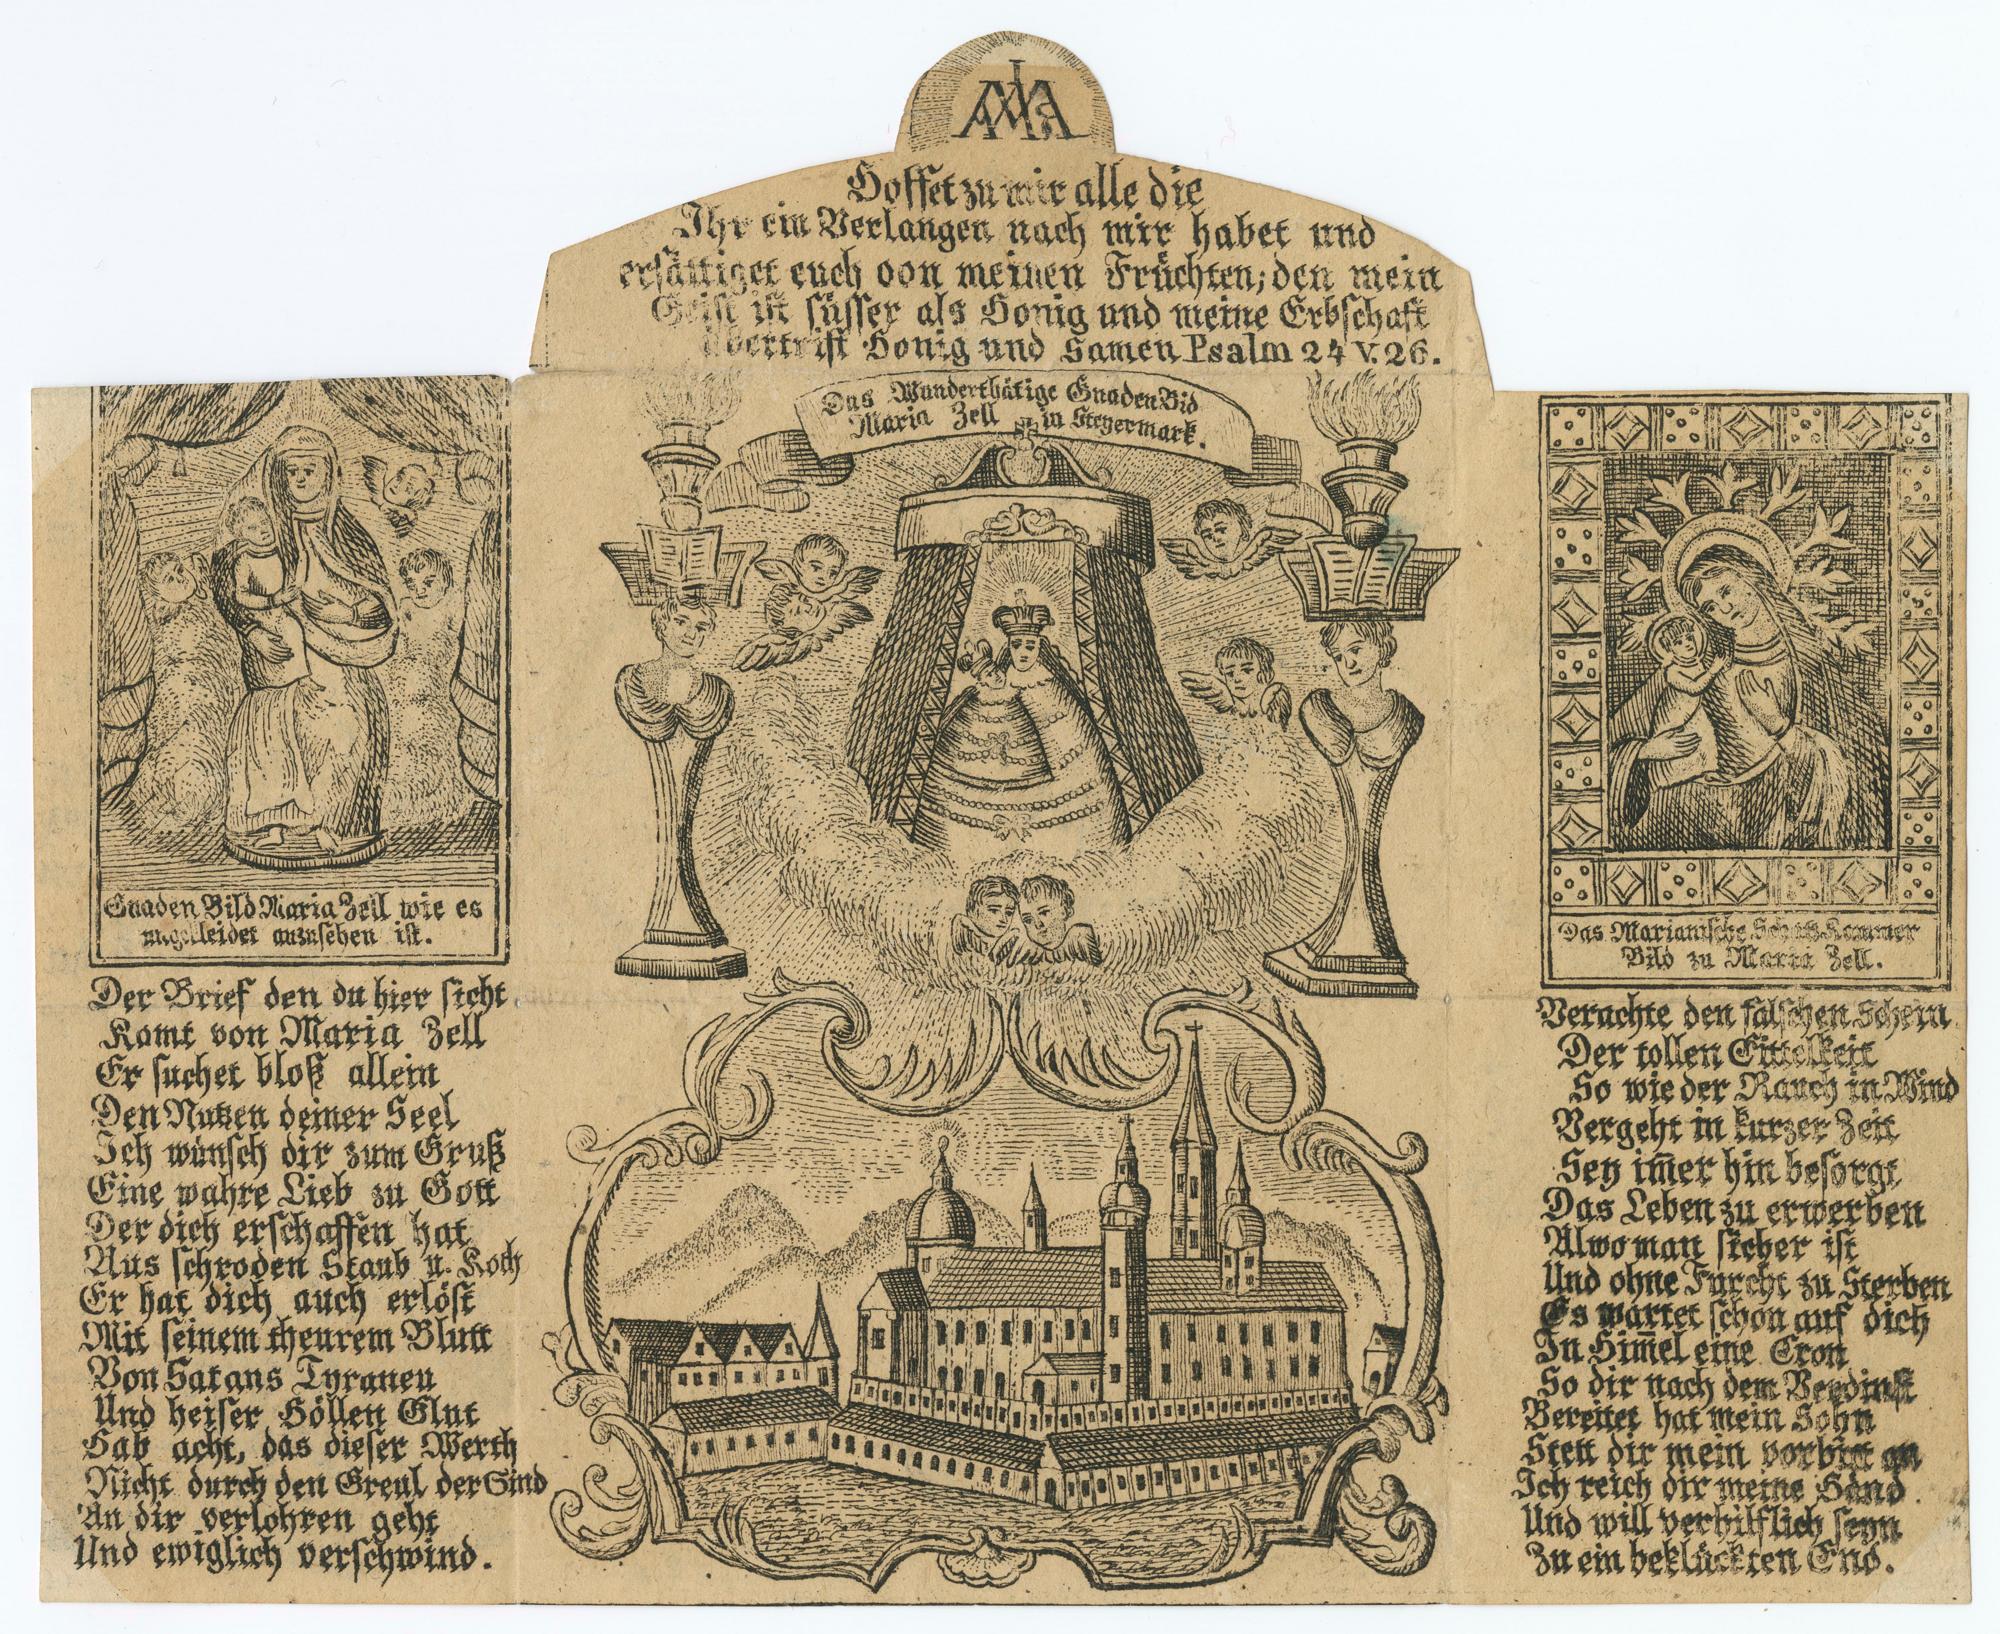 MARIA
Hoffet zu mir alle die
Ihr ein Verlangen nach mir habet und
ersättiget euch von meinen Früchten; den mein
Geist ist süsser als Honig und meine Erbschaft
übertrift Honig und Samen Psalm 24 V. 26.
Das Wunderthätige Gnaden Bid
Maria Zell in Steyermark.
Gnaden Bild Maria Zell wie es
angekleidet anzusehen ist.
Der Brief den du hier sicht
Komt von Maria Zell
Er suchet bloß allein
Den Nutzen deiner Seel
Ich wünsch dir zum Gruß
Eine wahre Lieb zu Gott
Der dich erschaffen hat
Aus schroden Staub u. Koth
Er hat dich auch erlöst
Mit seinem theurem Blutt
Von Satans Tyraney
Und heiser Höllen Glut
Hab acht, das dieser Werth
Nicht durch den Greul der Sind
An dir verlohren geht
Und ewiglich verschwind.
Das Marianische Schatz Kammer
Bild zu Maria Zell.
Verachte den falschen Schein
Der tollen Eittelkeit
So wie der Rauch in Wind
Vergeht in kurzer Zeit
Sey im̅er hin besorgt
Das Leben zu erwerben
Alwo man sicher ist
Und ohne Furcht zu Sterben
Es wartet schon auf dich
In Him̅el eine Cron
So dir nach dem Verdinst
Bereitet hat mein Sohn
Stett dir mein vorbitt an
Ich reich dir meine Hand
Und will verhilflich seyn
Zu ein beklückten End.